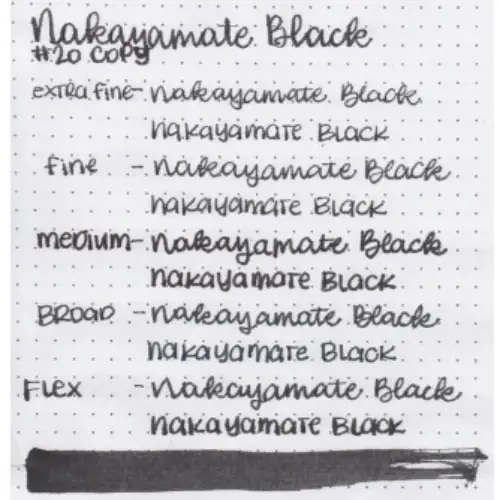 Nakayamate Black
#20 COPY
extra fine - Nakayamate Black
nakayamate Black
fine - Nakayamate Black
nakayamate Black
medium - Nakayamate Black
nakayamate Black
Broad - Nakayamate Black
nakayamate Black
Flex - Nakayamate Black
nakayamate Black